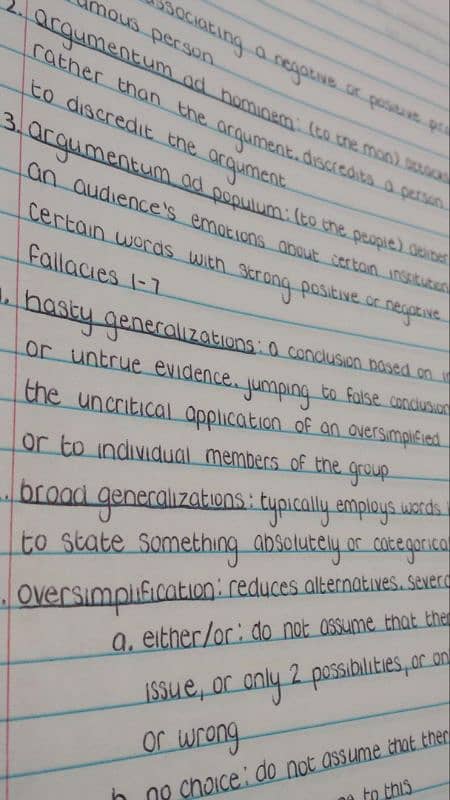 associating a negative or positive
famous person
2. argumentum ad hominem: (to the man) attacks
rather than the argument. discredits a person
to discredit the argument
3. argumentum ad populum: (to the people)
an audience's emotions about certain
certain words with strong positive or negative
fallacies 1-7
hasty generalizations: a conclusion based on
or untrue evidence. jumping to false
the uncritical application of an oversimplified
or to individual members of the group
broad generalizations: typically employs words
to state something absolutely or
oversimplification: reduces alternatives.
a. either/or: do not assume that
issue, or only 2 possibilities, or
or wrong
no choice: do not assume that
to this